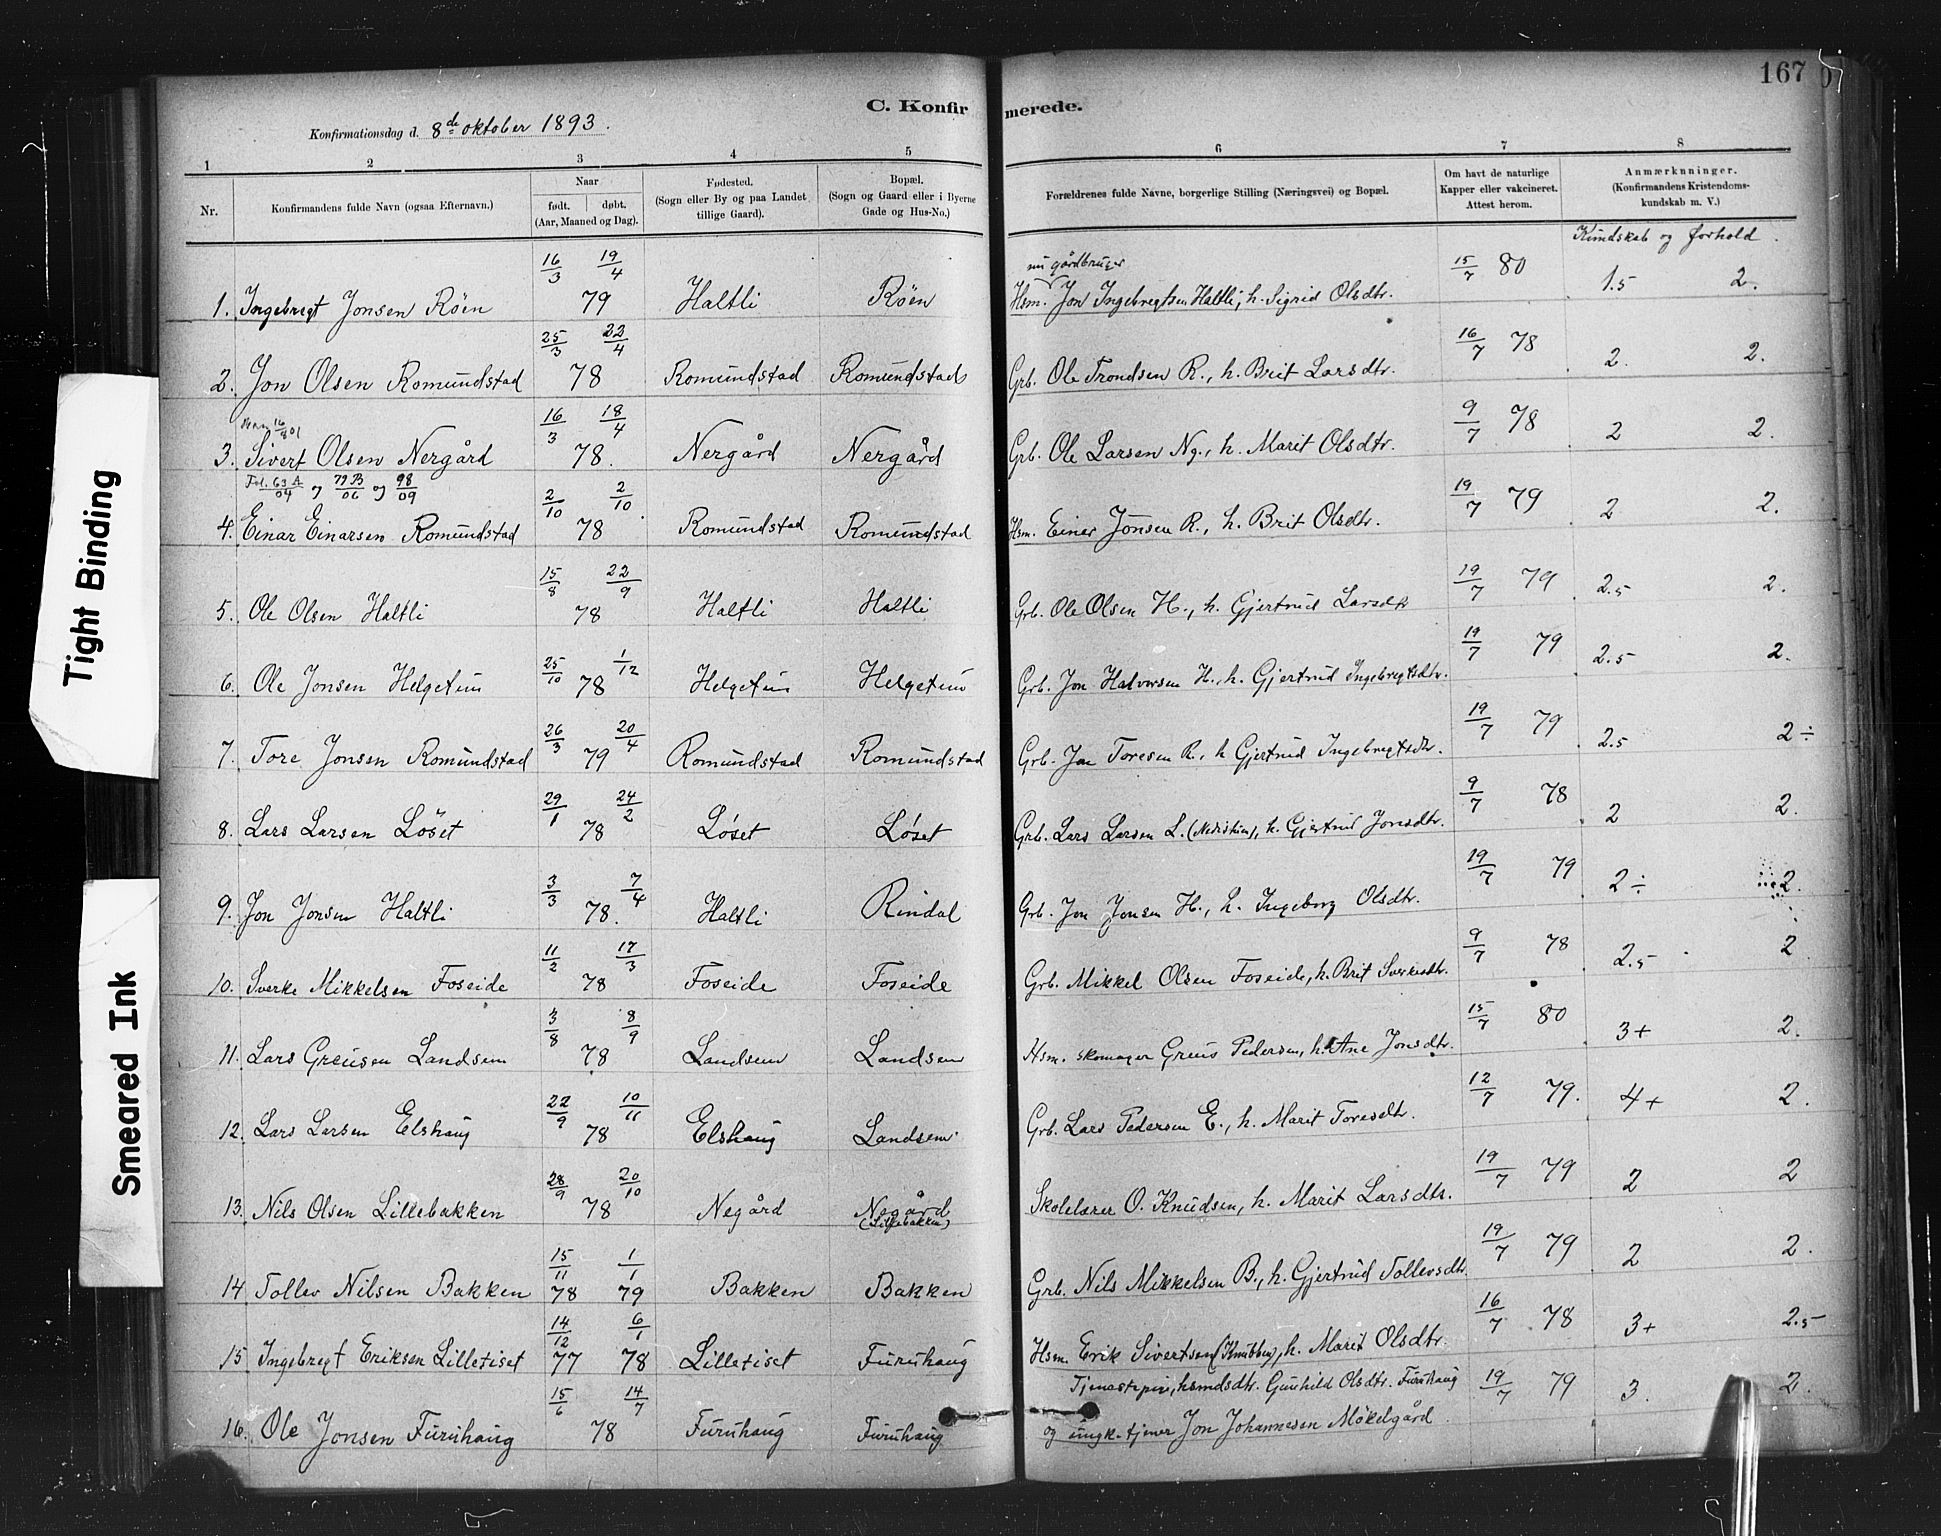 167
C. Konfirmerede.
Konfirmationsdag d. 8de oktober 1893.
1 2 3 4 5 6 7 8
Nr. Konfirmandens fulde Navn (ogsaa Efternavn.) Naar født. døbt. (Aar, Maaned og Dag). Fødested. (Sogn eller By og paa Landet tillige Gaard). Bopæl. (Sogn og Gaard eller i Byerne Gade og Hus-No.) Forældrenes fulde Navne, borgerlige Stilling (Næringsvei) og Bopæl. Om havt de naturlige Kapper eller vakcineret. Attest herom. Anmærkninger. (Konfirmandens Kristendomskundskab m. V.)
Kundskab og forhold.
nu gårdbruger
1. Ingebregt Jonsen Röen 16/3 19/4 79 Haltli Röen Hsm. Jon Ingebregtsen Haltli, h. Sigrid Olsdtr. 15/7 80 1.5 2.
2. Jon Olsen Romundstad 25/3 22/4 78 Romundstad Romundstad Grb. Ole Trondsen R., h. Brit Larsdtr. 16/7 78 2. 2.
3. Sivert Olsen Nergård 16/3 18/4 78. Nergård Nergård Grb. Ole Larsen Ng., h. Marit Olsdtr. 9/7 78 2 2.
Fol. 63A/04 og 79B/06 og 98/09
4. Einar Einarsen Romundstad 2/10 2/10 78 Romundstad Romundstad Hsm. Einer Jonsen R., h. Brit Olsdtr. 19/7 79 2 2.
5. Ole Olsen Haltli 15/8 22/9 78 Haltli Haltli Grb. Ole Olsen H., h. Gjertrud Larsdtr 19/7 79 2.5 2.
6. Ole Jonsen Helgetun 25/10 1/12 78 Helgetun Helgetun Grb. Jon Halvorsen H., h. Gjertrud Ingebregtsdtr. 19/7 79 2.5 2.
7. Tore Jonsen Romundstad 26/3 20/4 79 Romundstad Romundstad Grb. Jon Toresen R., h Gjertrud Ingebregtsdtr. 19/7 79 2.5 2÷
8. Lars Larsen Löset 29/1 24/2 78 Løset Løset Grb. Lars Larsen L. (Nedistun), h. Gjertrud Jonsdtr. 9/7 78 2 2.
9. Jon Jonsen Haltli 3/3 7/4 78. Haltli Rindal Grb. Jon Jonsen H., h. Ingeborg Olsdtr. 19/7 79 2÷ 2.
10. Sverke Mikkelsen Foseide 11/2 17/3 78 Foseide Foseide Grb. Mikkel Olsen Foseide, h. Brit Sverkesdtr. 9/7 78 2.5 2
11. Lars Greusen Landsem 3/8 8/9 78 Landsem Landsem Hsm. skomager Greus Pedersen, h. Ane Jonsdtr. 15/7 80 3+ 2.
12. Lars Larsen Elshaug 22/9 10/11 78 Elshaug Landsem Grb. Lars Pedersen E., h. Marit Toresdtr. 12/7 79. 4+ 2.
13. Nils Olsen Lillebakken 28/9 20/10 78 Negård Negård (Lillebakken) Skolelærer O. Knudsen, h. Marit Larsdtr. 19/7 79 2 2
14 Tollev Nilsen Bakken 15/11 78 1/1 79 Bakken Bakken Grb. Nils Mikkelsen B., h. Gjertrud Tollevsdtr. 19/7 79 2 2.
15 Ingebregt Eriksen Lilletiset 14/12 77 6/1 78 Lilletiset Furuhaug Hsm. Erik Sivertsen (Knubben), h. Marit Olsdtr. 16/7 78 3+ 2.5
16. Ole Jonsen Furuhaug 15/6 14/7 78 Furuhaug Furuhaug Tjenestepige, hsmdsdtr. Gunhild Olsdtr. Furuhaug og ungk. tjener Jon Johannesen Møkelgård. 19/7 79 3. 2.
Tight Binding
Smeared Ink